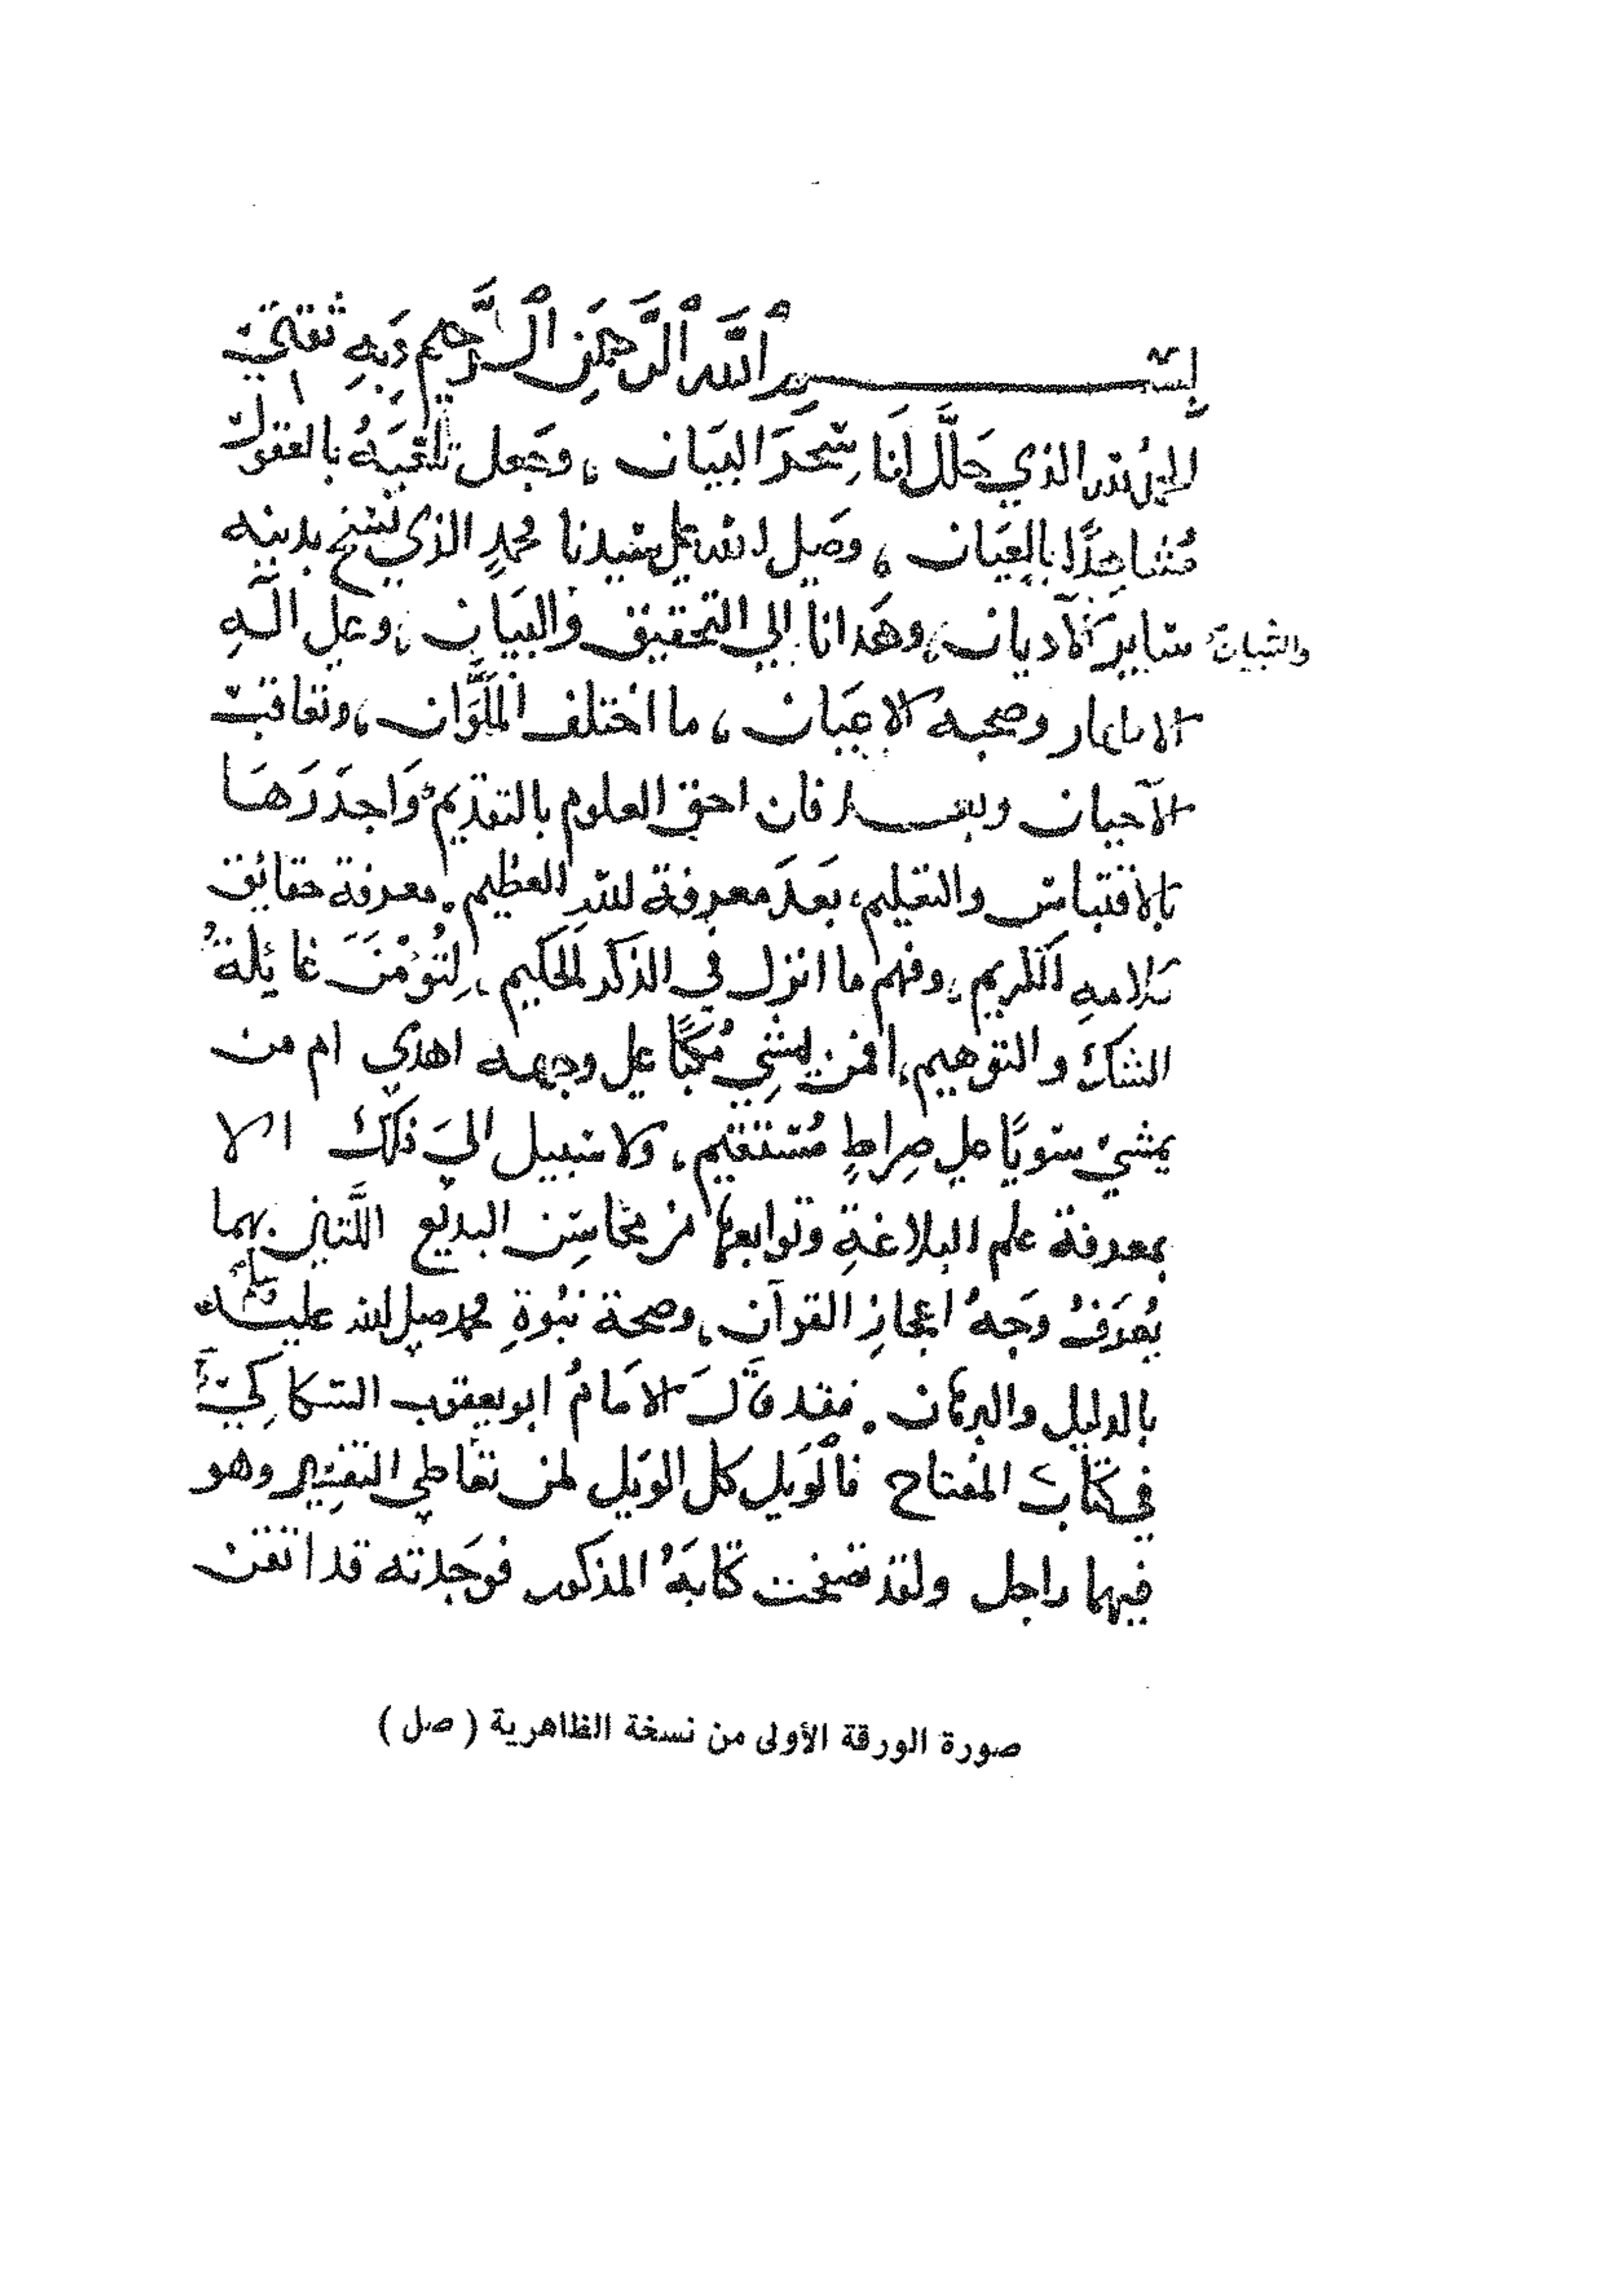 بسم اللَّه الرَّحمَنِ الرَّحيم وَبِهِ ثقتي
الحمدُ لله الذي حَلَّلَ لَنَا سِحْرَ البَيَان ، وجَعل تلعّبَهُ بالعقول
مُشاهَدًا بالعِيَان ، وصَلى الله على سيدنا محمدٍ الذي نسَخ بدينه
سَايرَ الأديان ، وهَدانا إلي التحقيق والبَيَان ، وعلى آلهِ
والتبيان
الاطهار وصحبه الاعيَان ، ما اختلف المَلَوَان ، وتعاقبَت
الأحيان وبعد فان احق العلوم بالتقديم وَاجدَرَهَا
بالاقتباس والتعليم ، بَعدَ معرفة الله العظيم . معرفة حقائق
كلامهِ الكريم ، وفهم ما انزل في الذكر الحكيم ، لِتُؤْمَنَ غايلةُ
الشك والتوهيم ، افمن يمشِي مُكبًّا على وجهه اهدي ام من
يمشي سَويًّا علي صِراطٍ مُستقيم ، ولا سبيل اليَ ذلك الا
بمعرفة علم البلاغةِ وتوابعها من محاسِن البديع اللَّتين بهما
يُعرَفُ وَجهُ اعجازِ القرآن ، وصحة نبُوةِ محمد صلى الله عليه وسلم
بالدليل والبرهان . فقد قالَ الامَامُ ابو يعقوب السَكاكِيّ
في كتابَ المفتاح فالوَيل كل الويل لمن تعاطي التفسير وهو
فيهما راجل ولقد تصفحت كتابَهُ المذكور فوَجدته قد اتقن
صورة الورقة الأولى من نسخة الظاهرية ( صل )